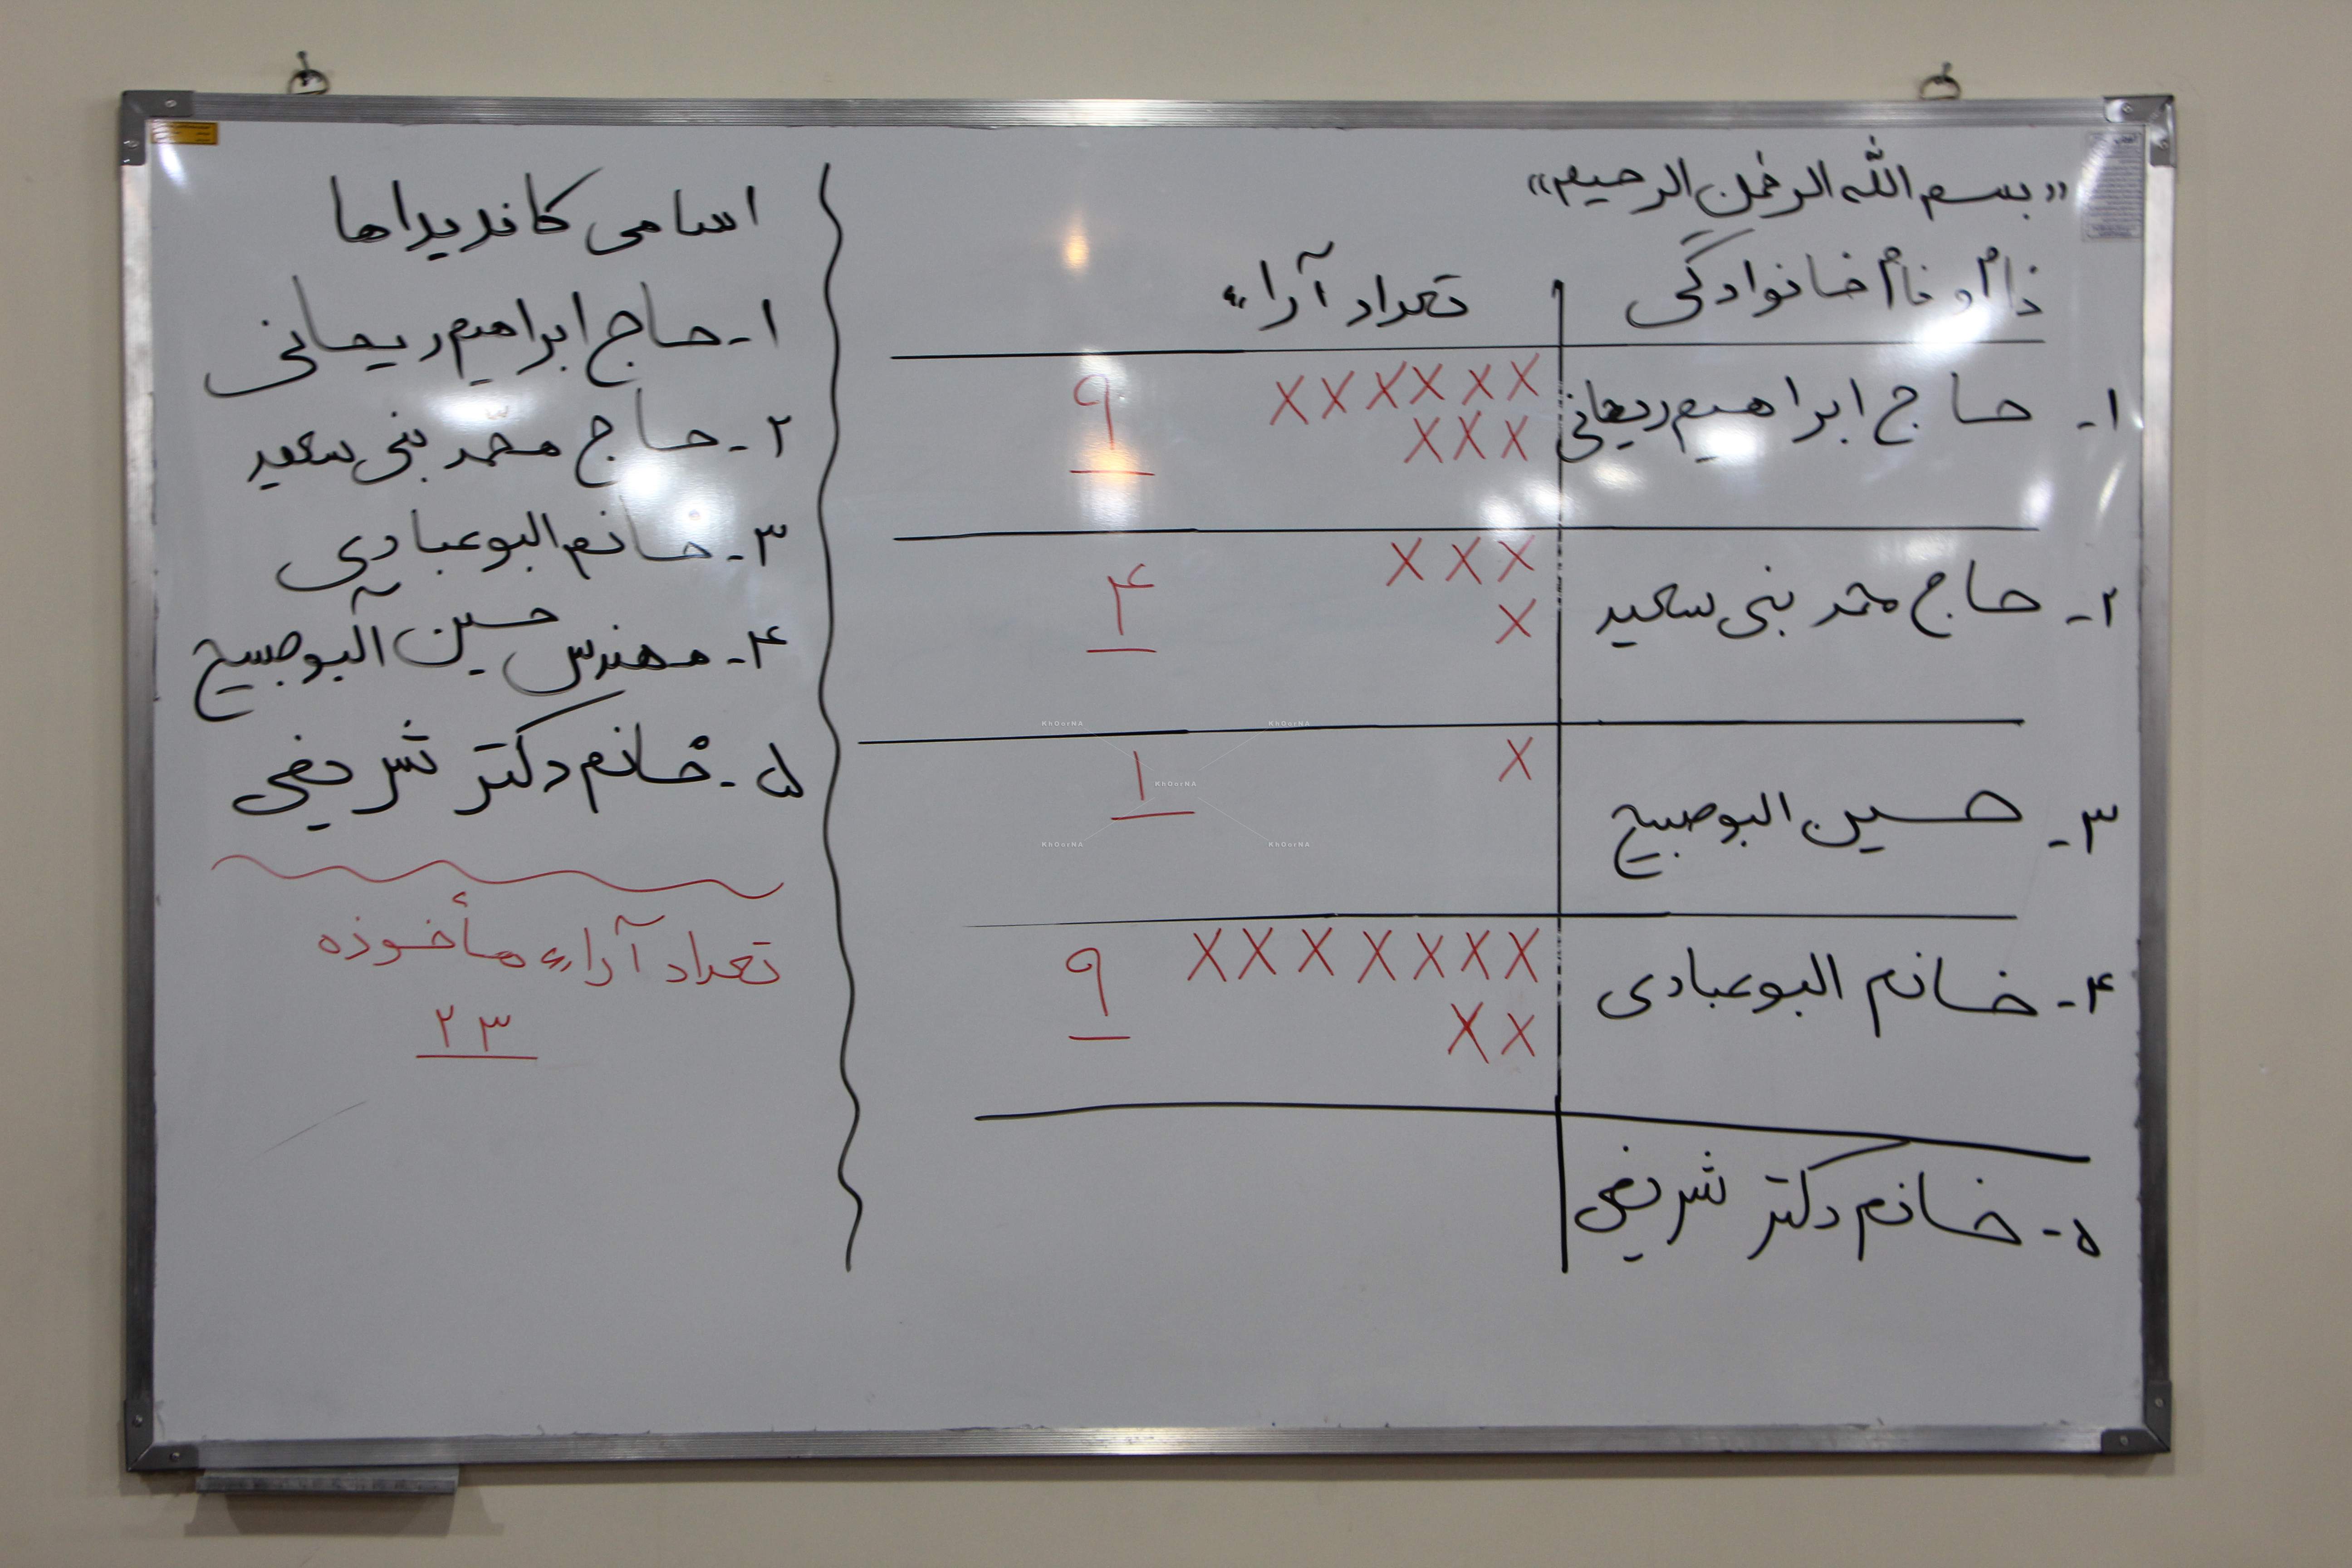 «بسم الله الرحمن الرحیم»
نام و نام خانوادگی تعداد آراء
۱- حاج ابراهیم ریحانی XXXXXX ۹
XXX
۲- حاج محمد بنی سعید XXX ۴
X
۳- حسین البوصبیح X ۱
۴- خانم البوعبادی XXXXXXX ۹
XX
۵- خانم دکتر شریفی
اسامی کاندیداها
۱- حاج ابراهیم ریحانی
۲- حاج محمّد بنی سعید
۳- خانم البوعبادی
۴- مهندس حسین آلبوصبیح
۵- خانم دکتر شریفی
تعداد آراء مأخوذه
۲۳
KhOorNA
KhOorNA
KhOorNA
KhOorNA
KhOorNA